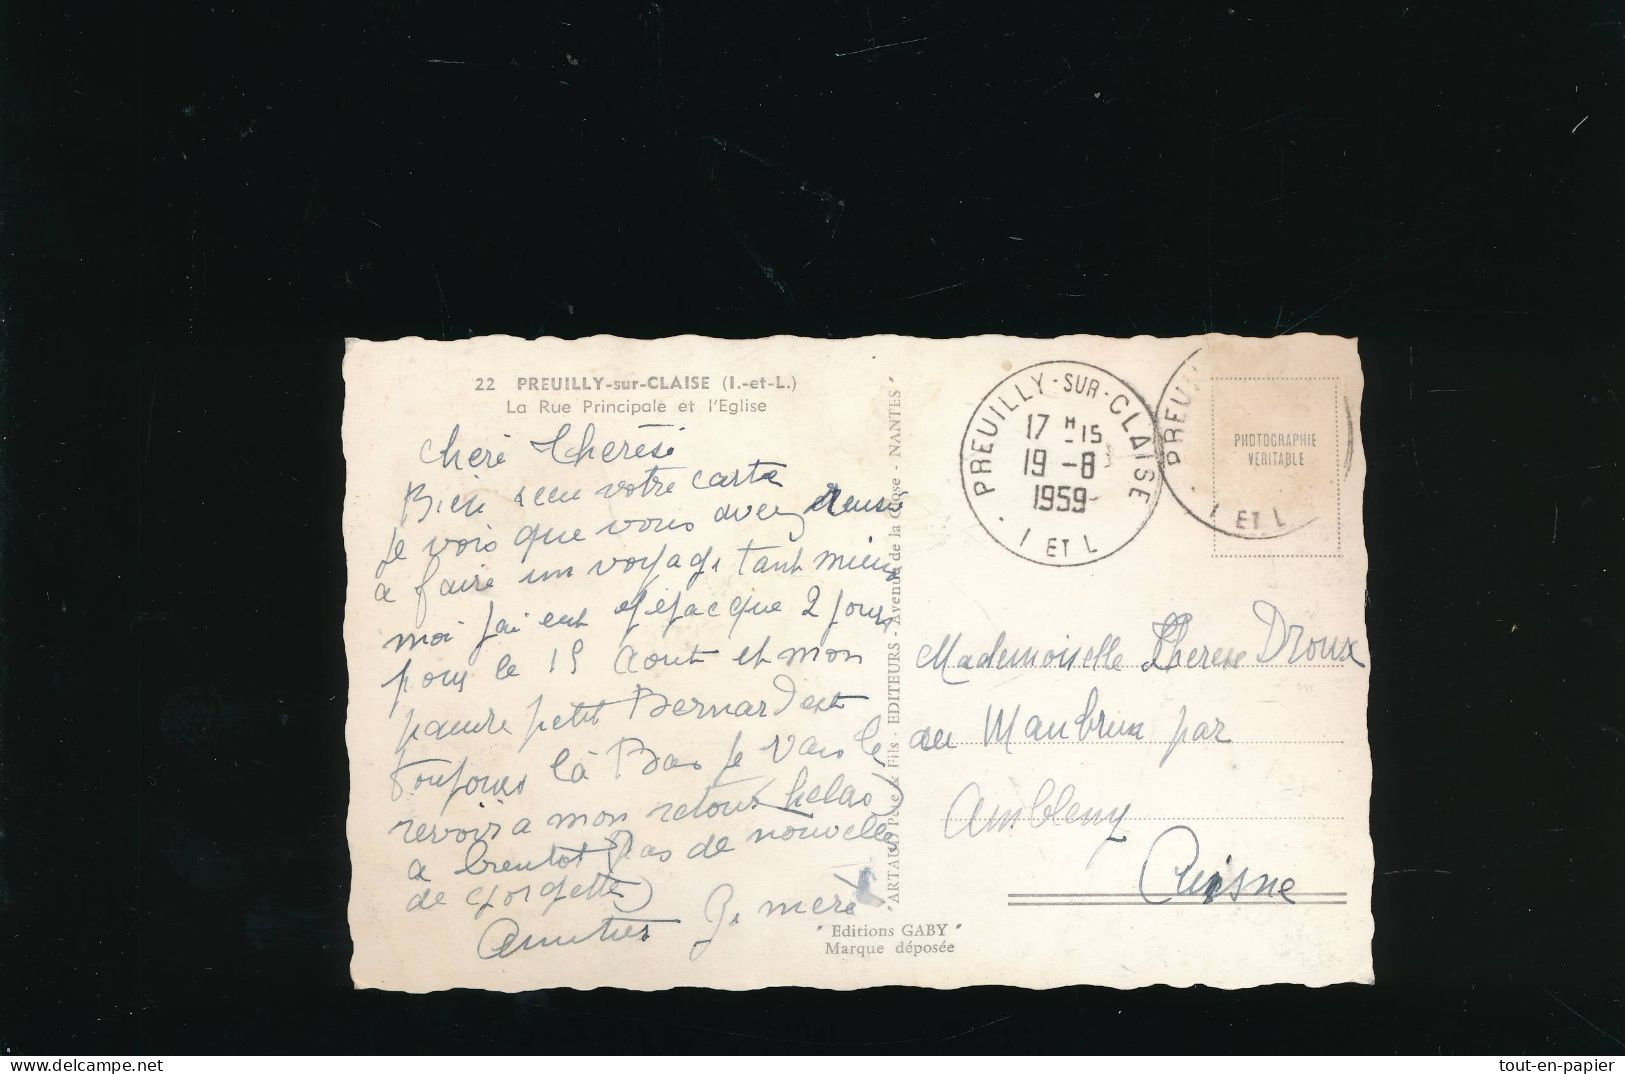 22 PREUILLY-sur-CLAISE (I.-et-L.)
La Rue Principale et l'Eglise
Cheré Therèse
Bien reçu votre carte
je vois que vous avez reussi
a faire un voyage tant mieux
moi j'ai eut que 2 jours
pour le 15 Aout et mon
pauvre petit Bernard est
toujours là Bas je vais le
revoir a mon retour (helas)
a bientot (Pas de nouvelle
de gorgette)
Amities mere
"ARTAUD Père & Fils - EDITEURS - Avenue de la Close - NANTES"
" Editions GABY "
Marque déposée
PREUILLY-SUR-CLAISE
17 H -15
19 -8
1959
I ET L
PREUI
I ET L
PHOTOGRAPHIE
VERITABLE
Mademoiselle Therese Droux
au Maubrun par
Ambleny
Aisne
delcampe.net
tout-en-papier